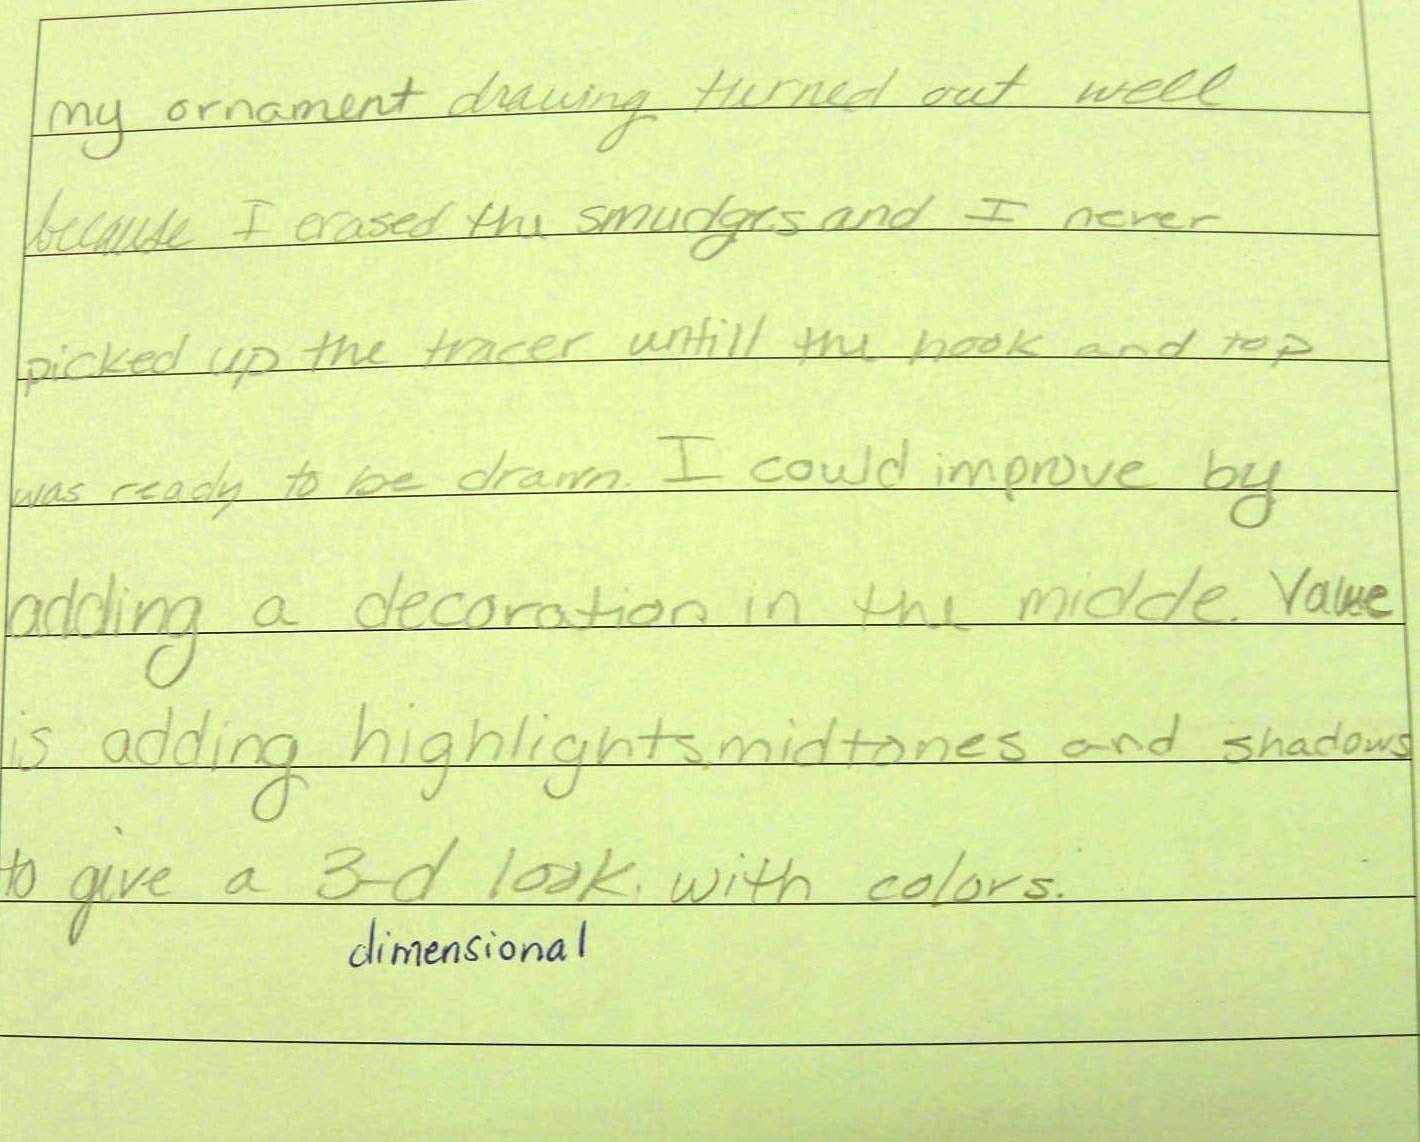 my ornament drawing turned out well
because I erased the smudges and I never
picked up the tracer untill the hook and top
was ready to be drawn. I could improve by
adding a decoration in the middle. Value
is adding highlights, midtones and shadows
to give a 3-d look. with colors.
dimensional